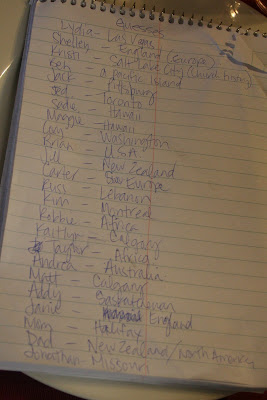 Guesses
Lydia - Las Vegas
Shelley - England (Europe)
Kristi - Salt Lake City (Union
Beth - a Pacific Island
Jack - Pittsburg
Jed - Toronto
Sadie - Hawaii
Maggie - Hawaii
Lory - Washington
Brian - U.S.A
Jill - New Zealand
Carter - Europe
Russ - Lebanon
Kim - Montreal
Robbie - Africa
Kaitlyn - Calgary
Taylor - Africa
Andrea - Australia
Matt - Calgary
Addy - Saskatchewan
Janie - England
Mom - Halifax
Dad - New Zealand/North America
Jonathan - Missouri